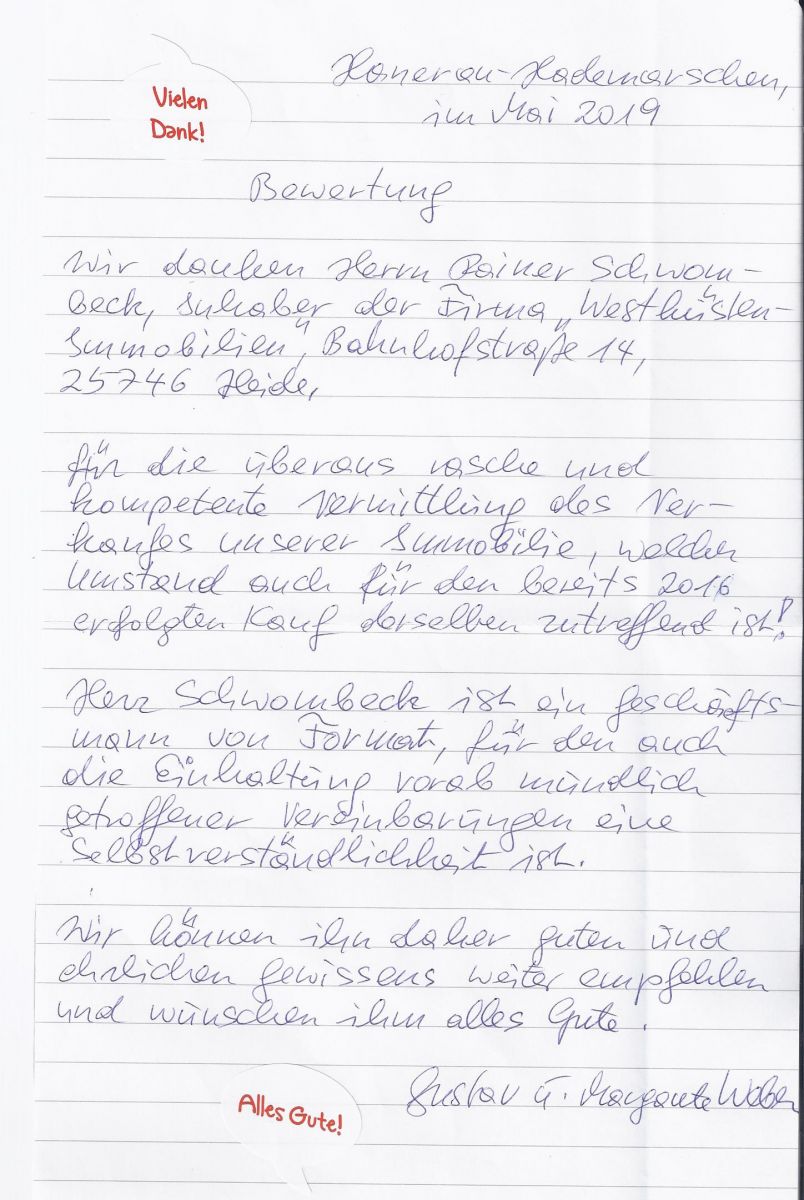 Vielen
Dank!
Hanerau-Hademarschen,
im Mai 2019
Bewertung
Wir danken Herrn Rainer Schwom-
beck, Inhaber der Firma „Westküsten-
Immobilien", Bahnhofstraße 14,
25746 Heide,
für die überaus rasche und
kompetente Vermittlung des Ver-
kaufes unserer Immobilie, welcher
Umstand auch für den bereits 2016
erfolgten Kauf derselben zutreffend ist!
Herr Schwombeck ist ein Geschäfts-
mann von Format, für den auch
die Einhaltung vorab mündlich
getroffener Vereinbarungen eine
Selbstverständlichkeit ist.
Wir können ihn daher guten und
ehrlichen Gewissens weiter empfehlen
und wünschen ihm alles Gute.
Gustav u. Margarete Weber
Alles Gute!